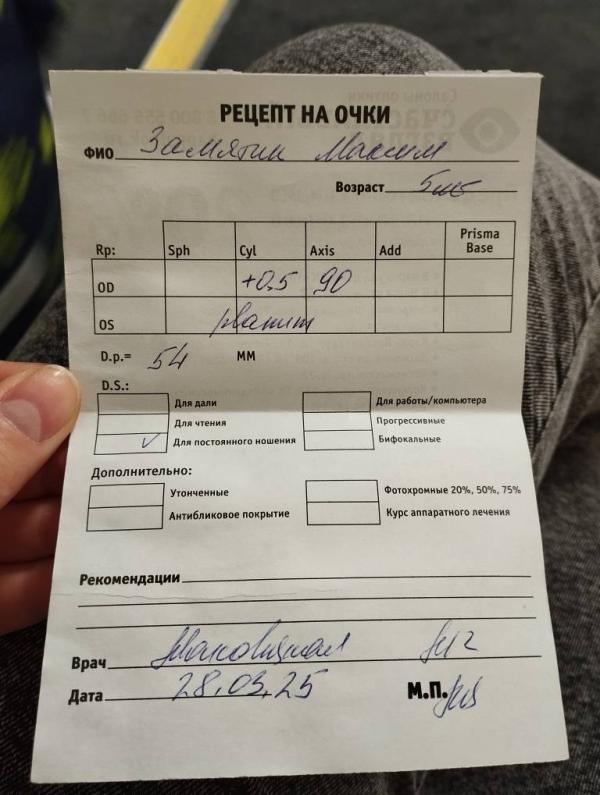 РЕЦЕПТ НА ОЧКИ
ФИО Замятин Максим
Возраст 5 лет
Rp: Sph Cyl Axis Add Prisma Base
OD +0,5 90
OS planum
D.p.= 54 ММ
D.S.:
Для дали Для работы/компьютера
Для чтения Прогрессивные
✓ Для постоянного ношения Бифокальные
Дополнительно:
Утонченные Фотохромные 20%, 50%, 75%
Антибликовое покрытие Курс аппаратного лечения
Рекомендации
Врач
Дата 28.03.25 М.П.